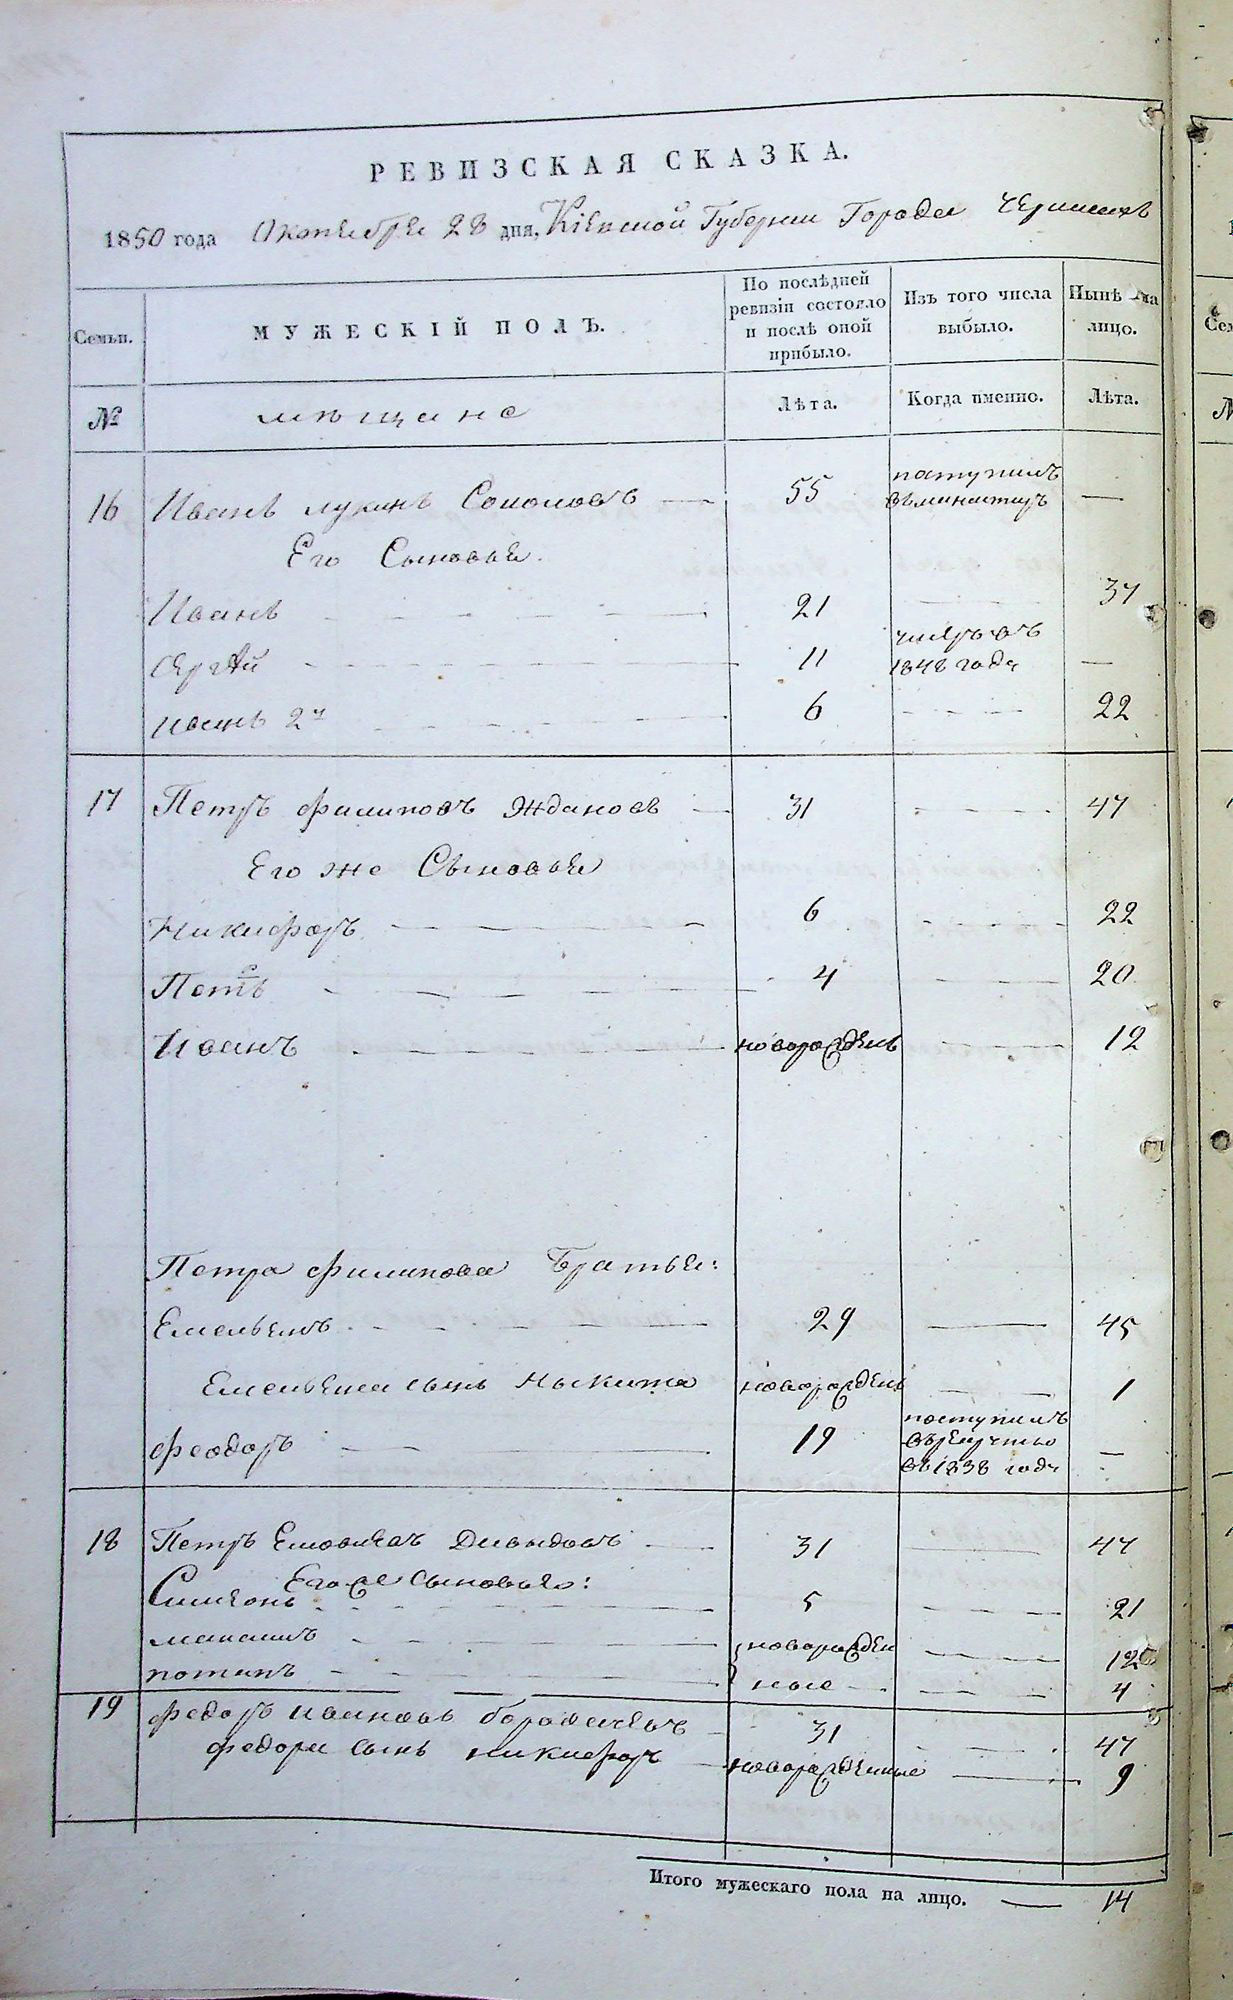 РЕВИЗСКАЯ СКАЗКА.
1850 года Октебре 28 дня, Кіевской Губернии Города
Семьи. МУЖЕСКІЙ ПОЛЪ. По послѣдней ревизіи состояло и послѣ оной прибыло. Изъ того числа выбыло. Нынѣ на лицо.
№ мѣщане Лѣта. Когда именно. Лѣта.
16 Иванъ Лукинъ Соколовъ 55 —
Его Сыновье
Иванъ 21 37
Сергѣй 11 1848 годи —
Иванъ 2й 6 22
17 Петръ Филиповъ Ждановъ 31 47
Его же Сыновье
Никифоръ 6 22
Петръ 4 20
Иванъ новорожденъ 12
Петра Филипова Братье:
Емельенъ 29 45
Емельена сынъ Ныкита новорожденъ 1
Феодоръ 19 поступилъ —
въ 1838 годи
18 Петръ Давыдовъ 31 47
Его же сыновье:
Симеонъ 5 21
новорожден 12
потапъ ные 4
19 Федоръ Ивановъ 31 47
Федора сынъ никифоръ новорожденные 9
Итого мужескаго пола на лицо. — 14